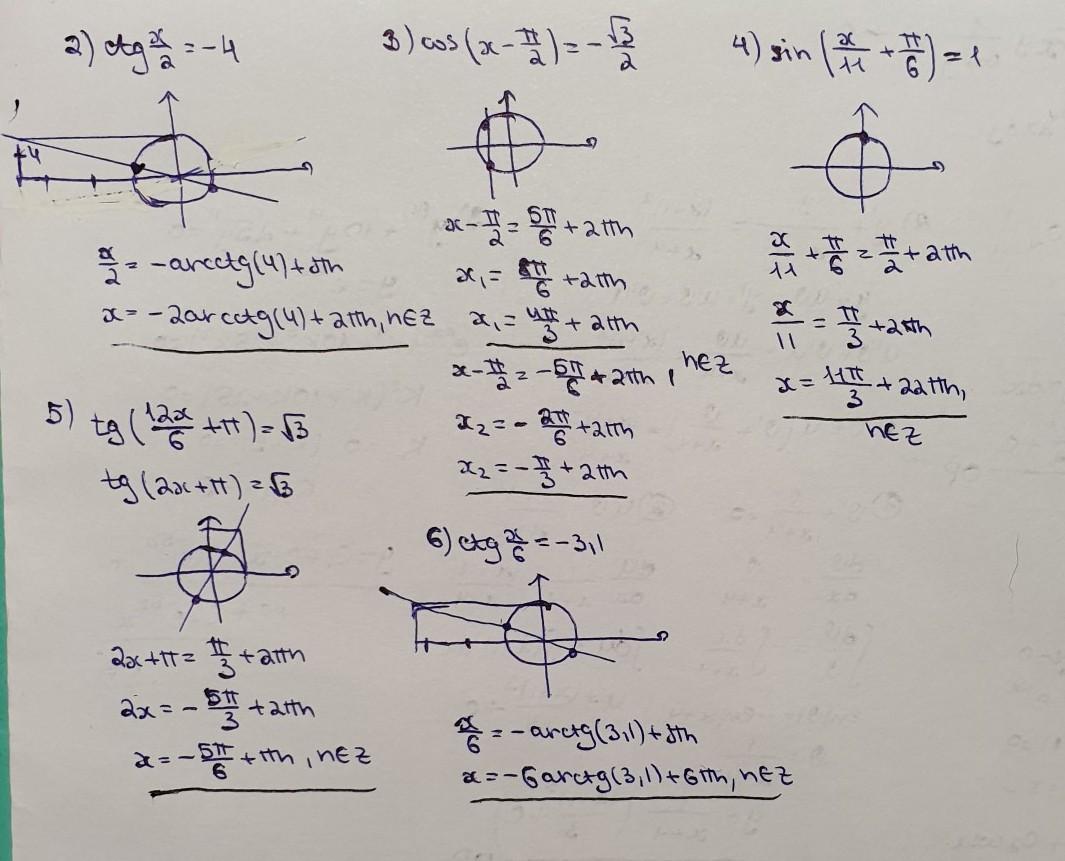 2) ctg x/2 = -4
-4
x/2 = -arcctg(4) + πn
x = -2arcctg(4) + 2πn, n∈Z
3) cos(x - π/2) = -√3/2
x - π/2 = 5π/6 + 2πn
x₁ = 8π/6 + 2πn
x₁ = 4π/3 + 2πn
x - π/2 = -5π/6 + 2πn, n∈Z
x₂ = -2π/6 + 2πn
x₂ = -π/3 + 2πn
4) sin(x/11 + π/6) = 1
x/11 + π/6 = π/2 + 2πn
x/11 = π/3 + 2πn
x = 11π/3 + 22πn,
n∈Z
5) tg(12x/6 + π) = √3
tg(2x + π) = √3
2x + π = π/3 + 2πn
2x = -5π/3 + 2πn
x = -5π/6 + πn, n∈Z
6) ctg x/6 = -3,1
x/6 = -arctg(3,1) + πn
x = -6arctg(3,1) + 6πn, n∈Z